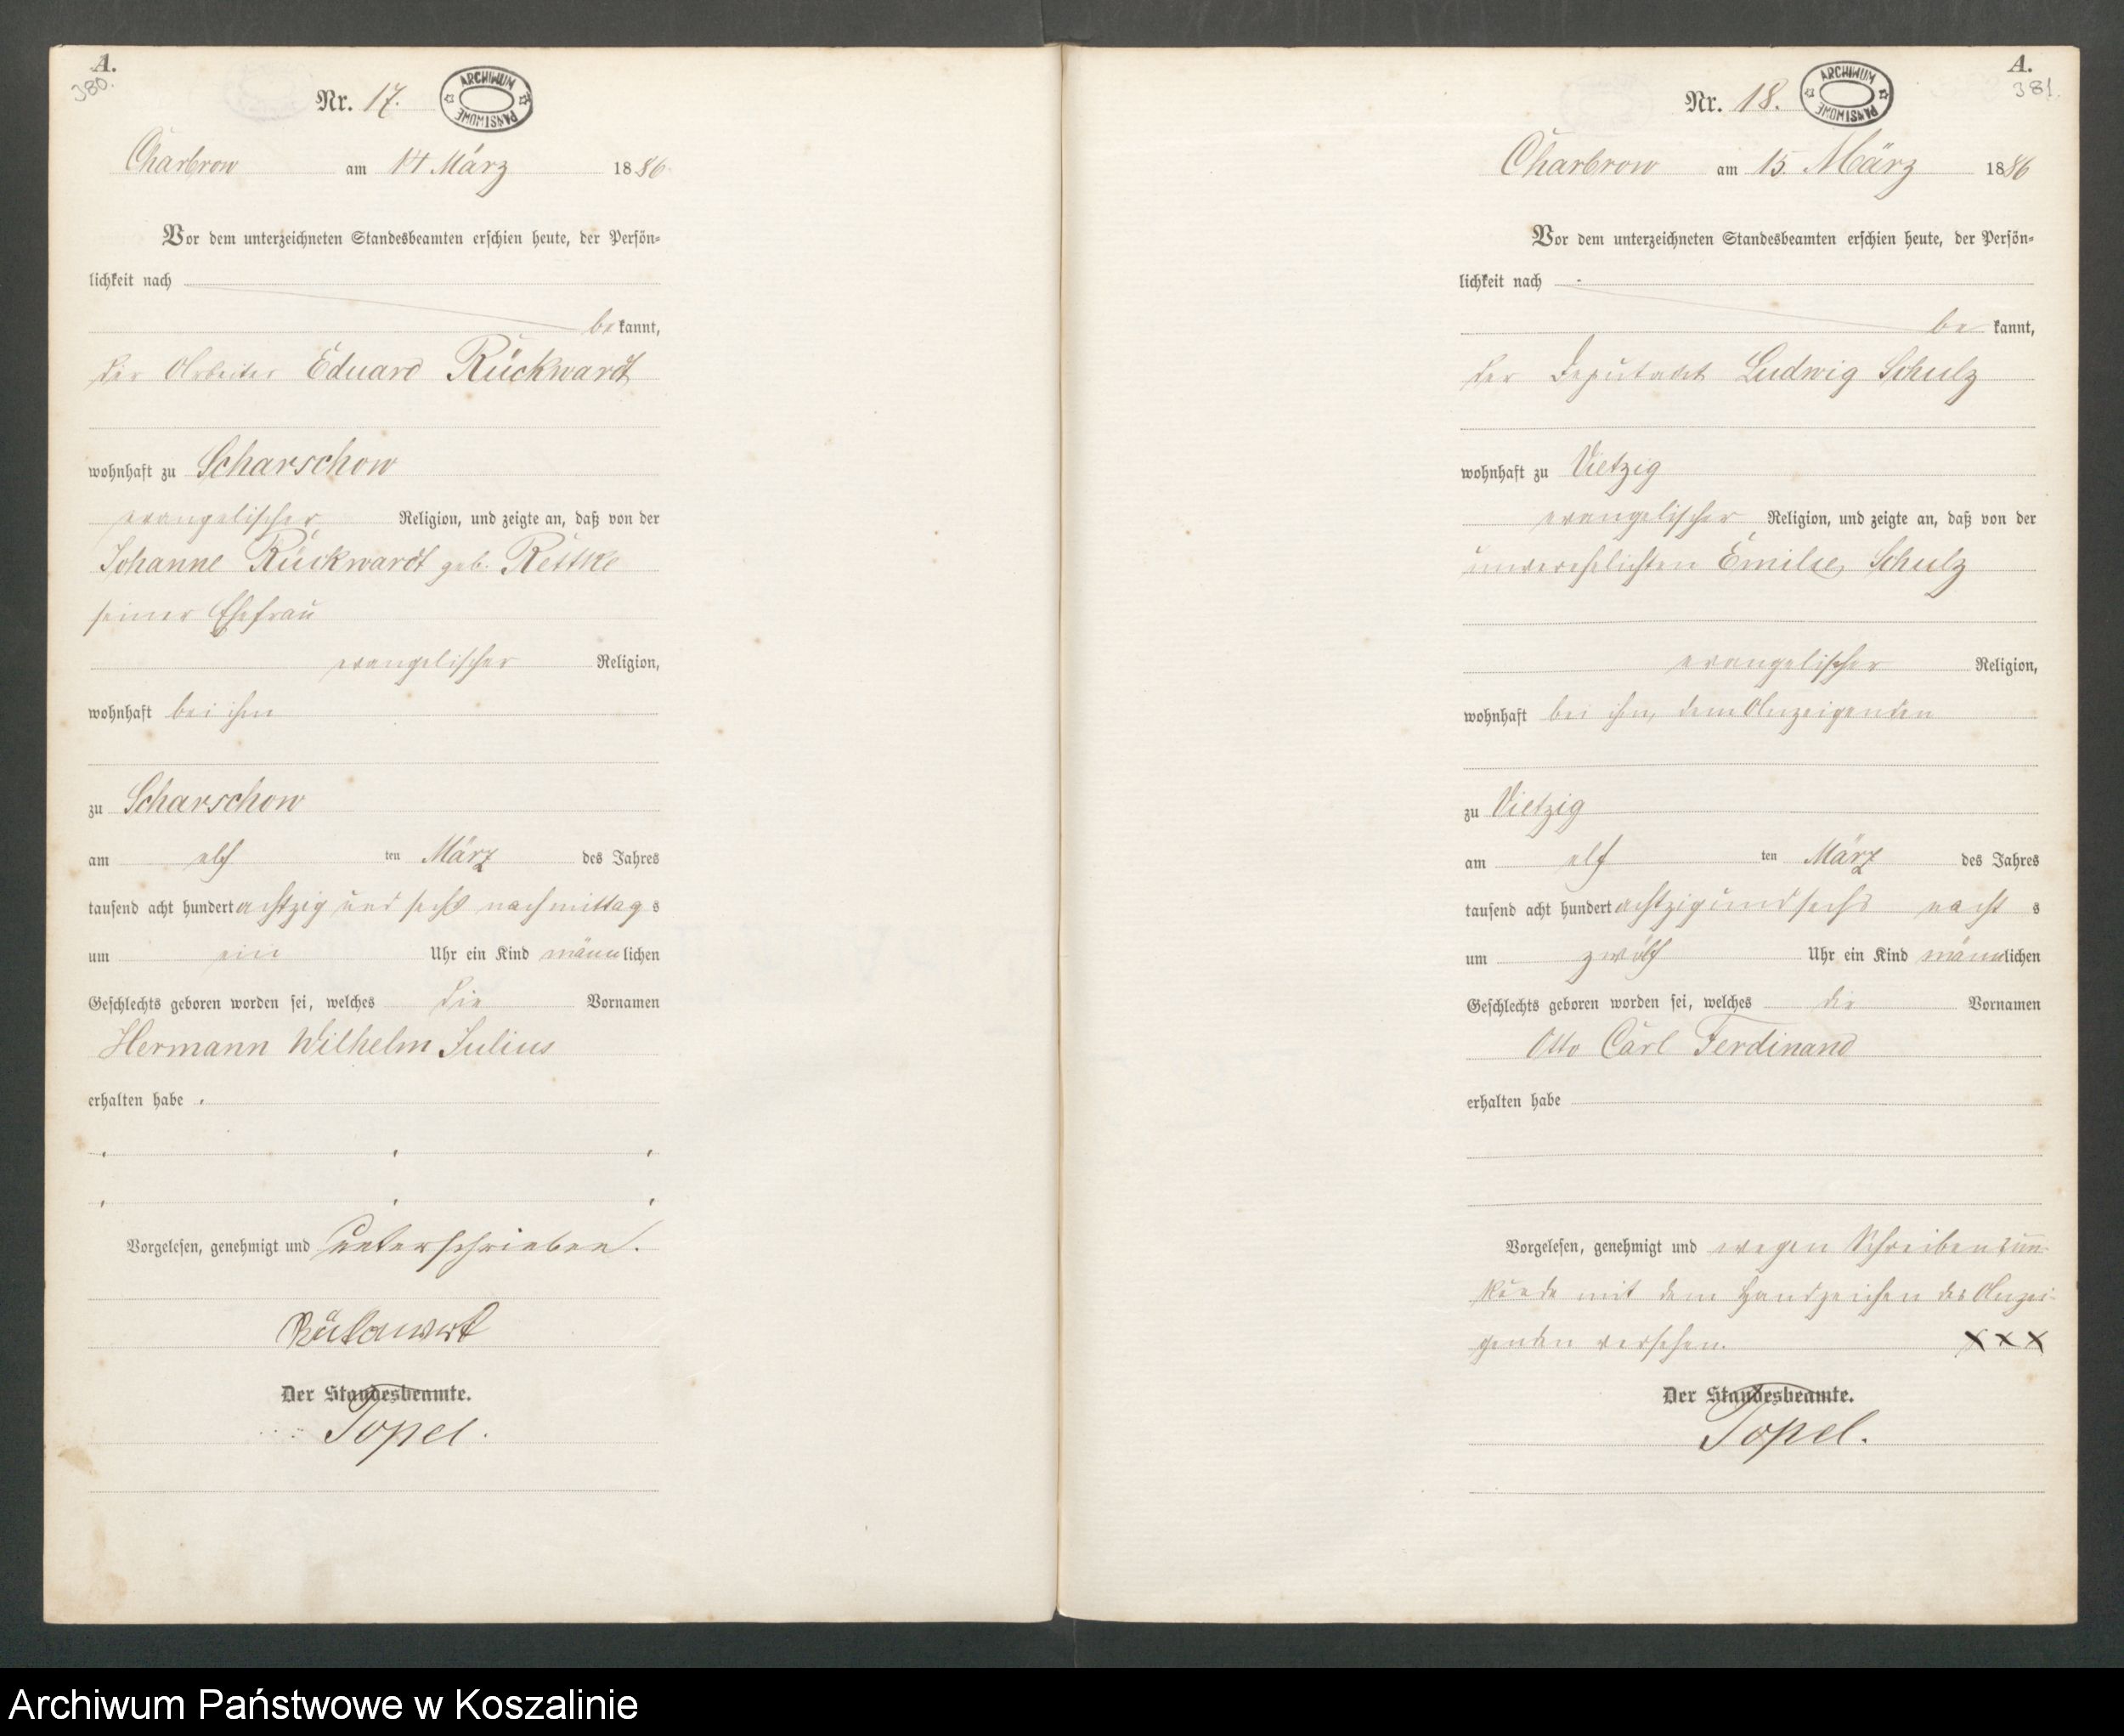 A.
380.
Nr. 17.
ARCHIWUM PAŃSTWOWE
Charbrow am 14 März 1886
Vor dem unterzeichneten Standesbeamten erschien heute, der Persön=
lichkeit nach
bekannt,
der Arbeiter Eduard Rückwardt
wohnhaft zu Scharschow
evangelischer Religion, und zeigte an, daß von der
Johanne Rückwardt geb. Rettke
seiner Ehefrau
evangelischer Religion,
wohnhaft bei ihm
zu Scharschow
am elf ten März des Jahres
tausend acht hundert achtzig und sechs nachmittags
um ein Uhr ein Kind männlichen
Geschlechts geboren worden sei, welches die Vornamen
Hermann Wilhelm Julius
erhalten habe .
Vorgelesen, genehmigt und unterschrieben.
Der Standesbeamte.
Topel.
A.
381.
Nr. 18.
ARCHIWUM PAŃSTWOWE
Charbrow am 15. März 1886
Vor dem unterzeichneten Standesbeamten erschien heute, der Persön=
lichkeit nach
bekannt,
der Deputant Ludwig Schulz
wohnhaft zu Vietzig
evangelischer Religion, und zeigte an, daß von der
unverehelichten Emilie Schulz
evangelischer Religion,
wohnhaft bei ihm, dem Anzeigenden
zu Vietzig
am elf ten März des Jahres
tausend acht hundert achtzig und sechs nachts
um zwölf Uhr ein Kind männlichen
Geschlechts geboren worden sei, welches die Vornamen
Otto Carl Ferdinand
erhalten habe
Vorgelesen, genehmigt und wegen Schreibensun=
kunde mit dem Handzeichen des Anzei=
genden versehen. XXX
Der Standesbeamte.
Topel.
Archiwum Państwowe w Koszalinie